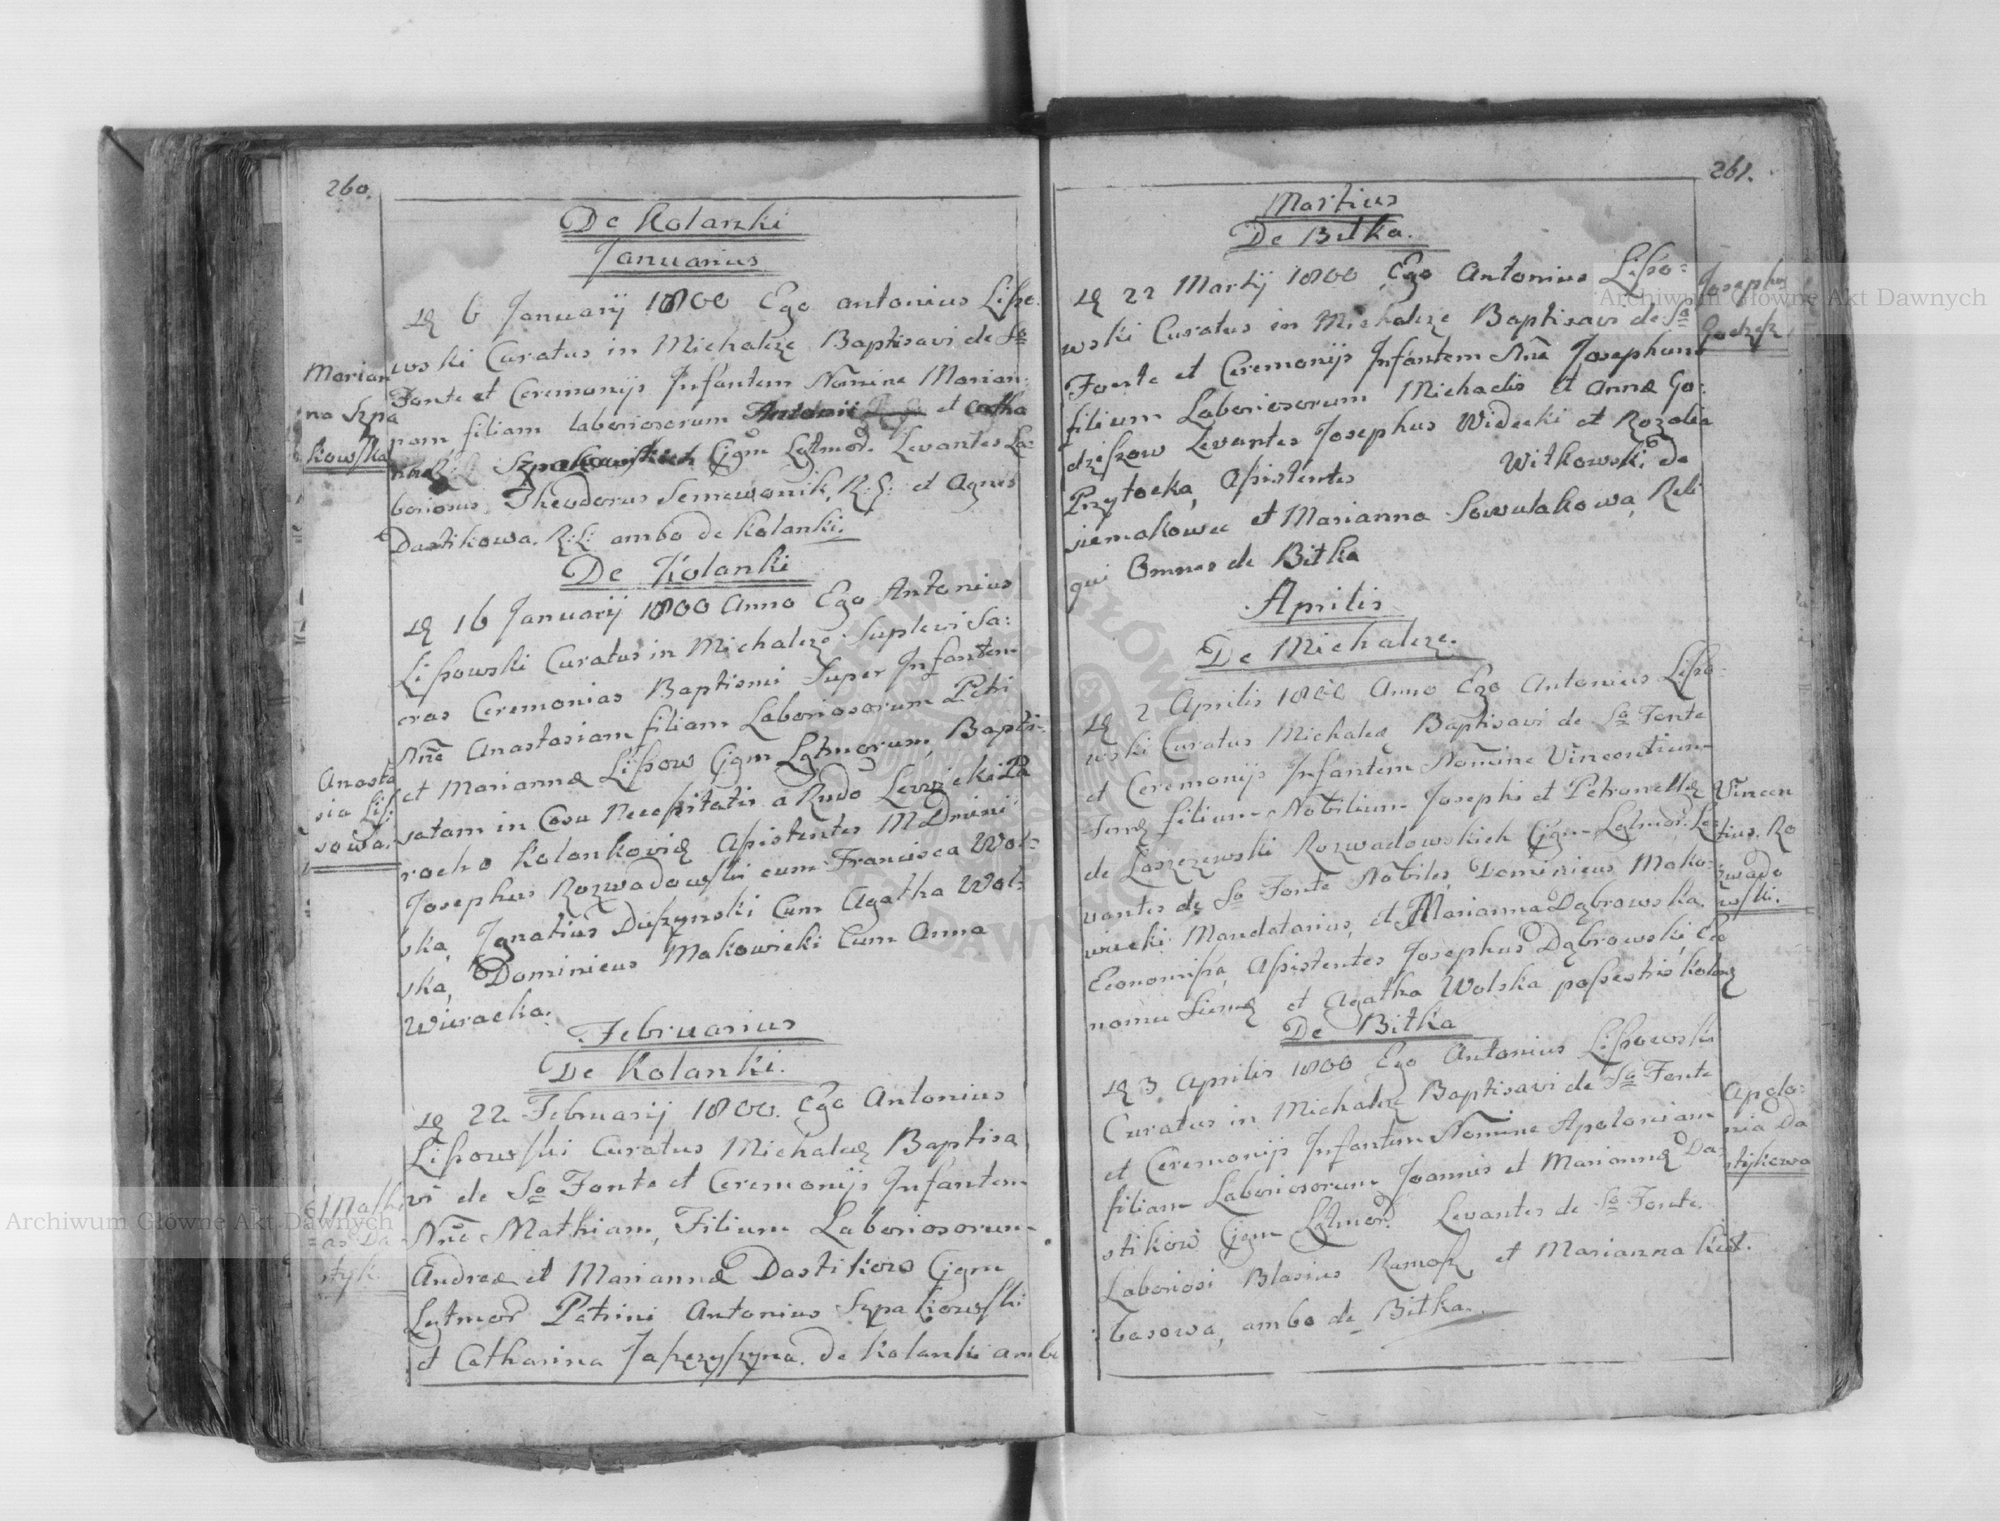 260.
De Kolanki
Januarius
D 6 Januarij 1800 Ego Antonius Lisso-
wski Curatus in Michalcze Baptisavi de So
Fonte et Ceremonijs Infantem Nomine Marian-
nam filiam laboriosorum Antonii et Catha
Szpakowskich Cjgm Lgtmor. Levantes La-
boriosus Theodorus Semewonik, R: G: et Agnes
Dastikowa. R: L: ambo de Kolanki.
Marian
na Szpa
kowska
De Kolanki
D 16 Januarij 1800 Anno Ego Antonius
Lissowski Curatus in Michalcze Suplevi Sa:
cras Ceremonias Baptismi Super Infantem
Nne Anastasiam filiam Laboriosorum Petri
et Mariannæ Lissow Cjgm Lgtmorum, Bapti-
satam in Casu Necessitatis a Rndo Levicki Pa
rocho Kolankovien Assistentes MDmini
Josephus Rozwadowski cum Francisca Wol-
ska, Ignatius Duszynski Cum Agatha Wol-
ska, Dominicus Makowiecki Cum Anna
Wieracka.
Anasta
sia Lis-
sowa.
Februarius
De Kolanki.
D 22 Februarij 1800. Ego Antonius
Lissowski Curatus Michalcze Baptisa
vi de So Fonte et Ceremonijs Infantem
Nne Mathiam, Filium Laboriosorum
Andreæ et Mariannæ Dastikow Cjgm
Lgtmor Patrini Antonius Szpakowski
et Catharina Jaszczyszyna. de Kolanki ambo
Mathi
as Da
styk.
261.
Martius
De Bitka.
D 22 Martij 1800, Ego Antonius Lisso-
wski Curatus in Michalcze Baptisavi de So
Fonte et Ceremonijs Infantem Nne Josephum
filium Laboriosorum Michaelis et Annæ Go-
dziszow Levantes Josephus Widecki et Rozolia
Przytocka, Assistentes Witkowski de
siemakowce et Marianna Sowulakowa, Reli
qui Omnes de Bitka
Josephus
Godzisz
Aprilis
De Michalcze.
D 2 Aprilis 1800 Anno Ego Antonius Lisso-
wski Curatus Michalcze Baptisavi de So Fonte
et Ceremonijs Infantem Nomine Vincentium
filium Nobilium Josephi et Petronellæ
de Laszczewski Rozwadowskich Cjgm Lgtmor. Le-
vantes de So Fonte Nobiles, Dominicus Mako-
wiecki Mandatarius, et Marianna Dąbrowska.
Economissa, Assistentes Josephus Dąbrowski, Eco
nomu et Agatha Wolska possestrix
Vincen
tius Ro
zwado
wski.
De Bitka
D 3 Aprilis 1800 Ego Antonius Lissowski
Curatus in Michalcze Baptisavi de So Fonte
et Ceremonijs Infantem Nomine Apoloniam
filiam Laboriosorum Joannis et Mariannæ Da-
stikow Cjgm Lgtmor. Levantes de So Fonte.
Laboriosi Blasius Ramosz, et Marianna
basowa, ambo de Bitka.
Apolo-
nia Da
stykowa
Archiwum Główne Akt Dawnych
Archiwum Główne Akt Dawnych